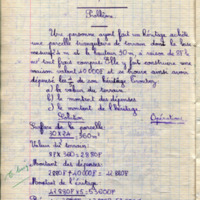 Problème
Une personne ayant fait un héritage achète
une parcelle triangulaire de terrain dont la base
mesure 24 m et la hauteur 30 m, à raison de 8F le
m² tout frais compris. Elle y fait construire une
maison valant 40 000F et se trouve ainsi avoir
dépensé les de son héritage. Trouvez
a) la valeur du terrain.
b) le montant des dépenses
c) le montant de l'héritage.
Solution Opérations
Surface de la parcelle
30 X 24 360m²
Valeur du terrain:
8F X 360 = 2880F
Montant des dépenses
2880F + 40 000F = 42880F
Montant de l'héritage